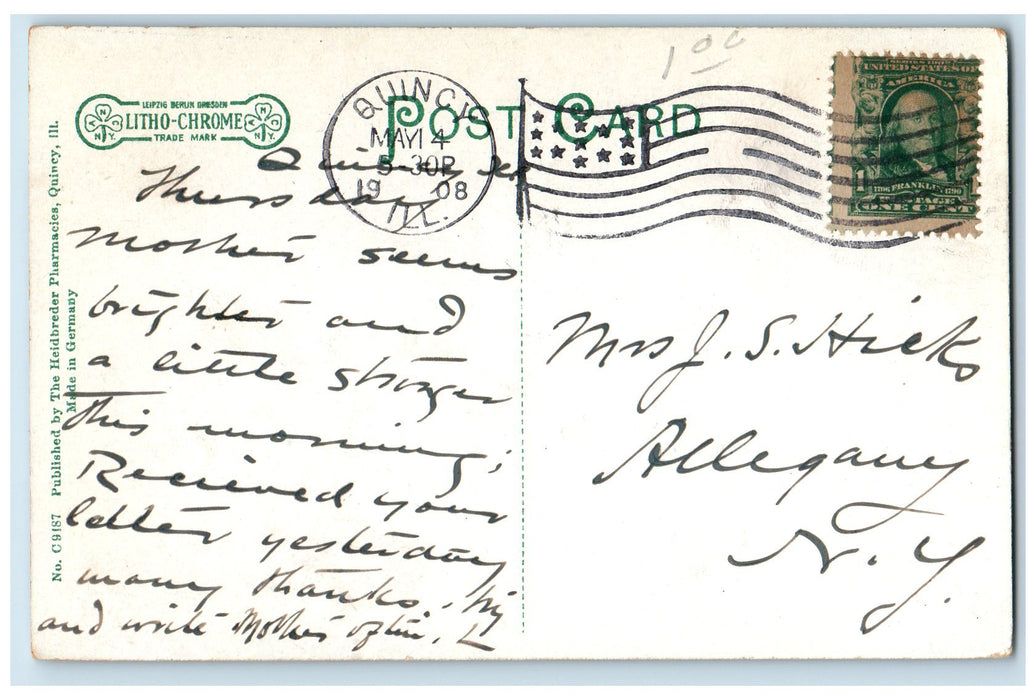 1 00
LEIPZIG BERLIN DRESDEN
LITHO-CHROME
TRADE MARK
N.Y.
N.Y.
POST CARD
QUINCY
MAY 14
5-30P
1908
ILL.
SERIES 1902
UNITED STATES OF
AMERICA
1706 FRANKLIN 1790
POSTAGE
ONE CENT
No. C9487 Published by The Heidbreder Pharmacies, Quincy, Ill.
Made in Germany
Quincy Ill
Thursday
Mother seems
brighter and
a little stronger
this morning,
Received your
letter yesterday
many thanks. Try
and write Mother often. L
Mrs J. S. Hicks
Allegany
N. Y.